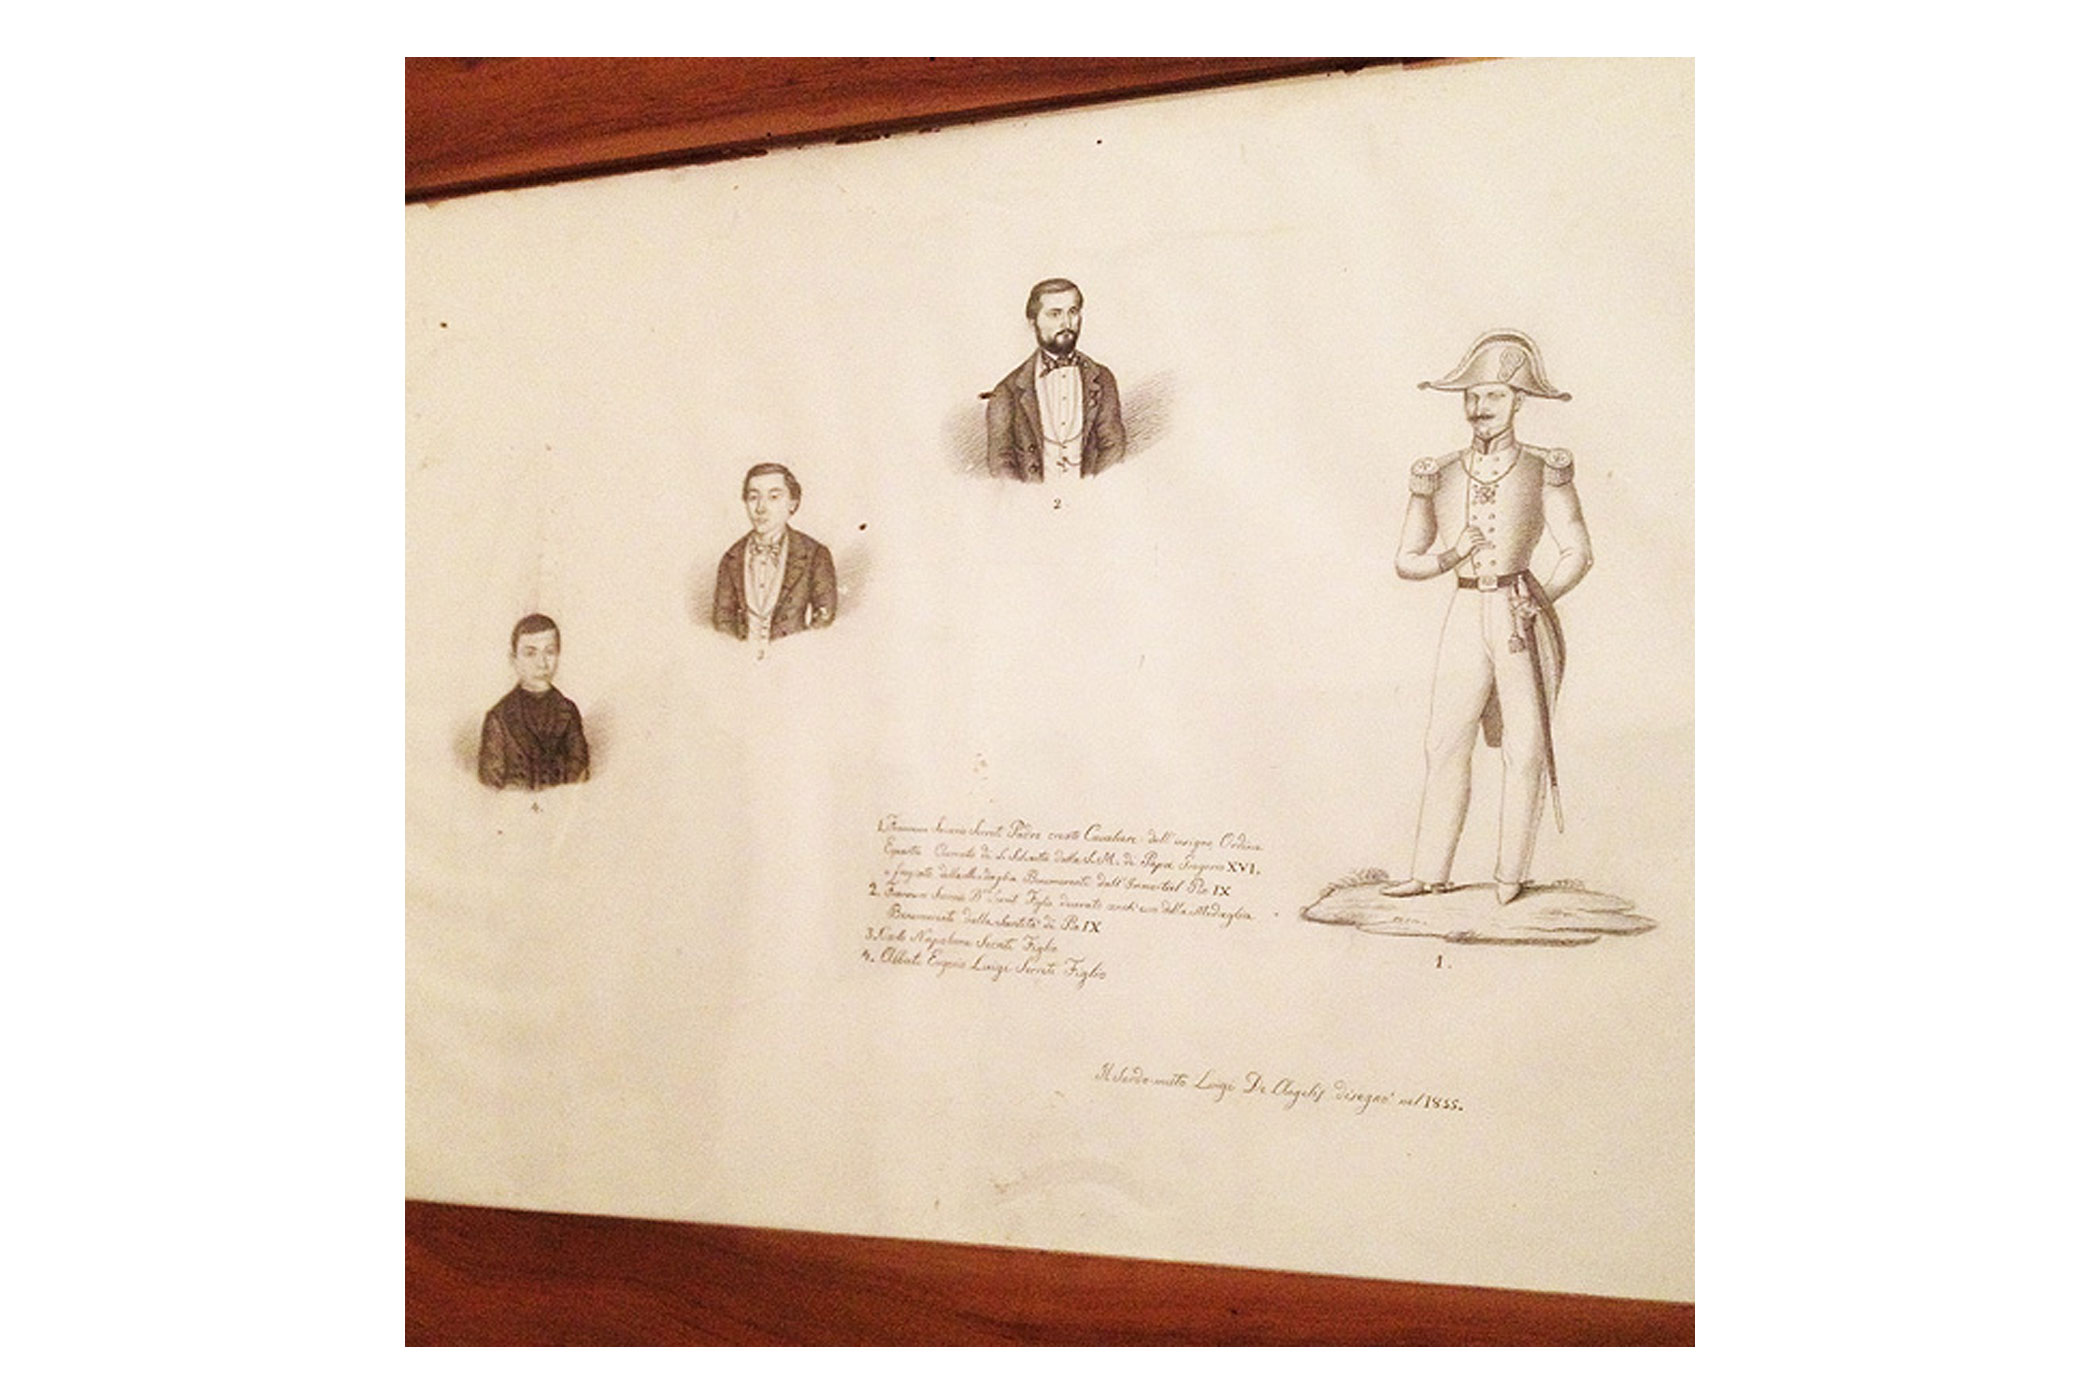 2
3
4.
1. Saverio Serrati Padre creato Cavaliere dell' insigne Ordine
Equestre di S. Silvestro della S. M. di Papa Gregorio XVI.
e fregiato della Medaglia Benemerenti dall' Immortal Pio IX
2. Saverio Dr Figlio decorato anch' esso della Medaglia
Benemerenti dalla Santità di Pio IX
3. Carlo Napoleone Serrati Figlio
4. Abbate Eugenio Luigi Serrati Figlio
1.
Il Sordo-muto Luigi De Angelis disegnò nel 1855.